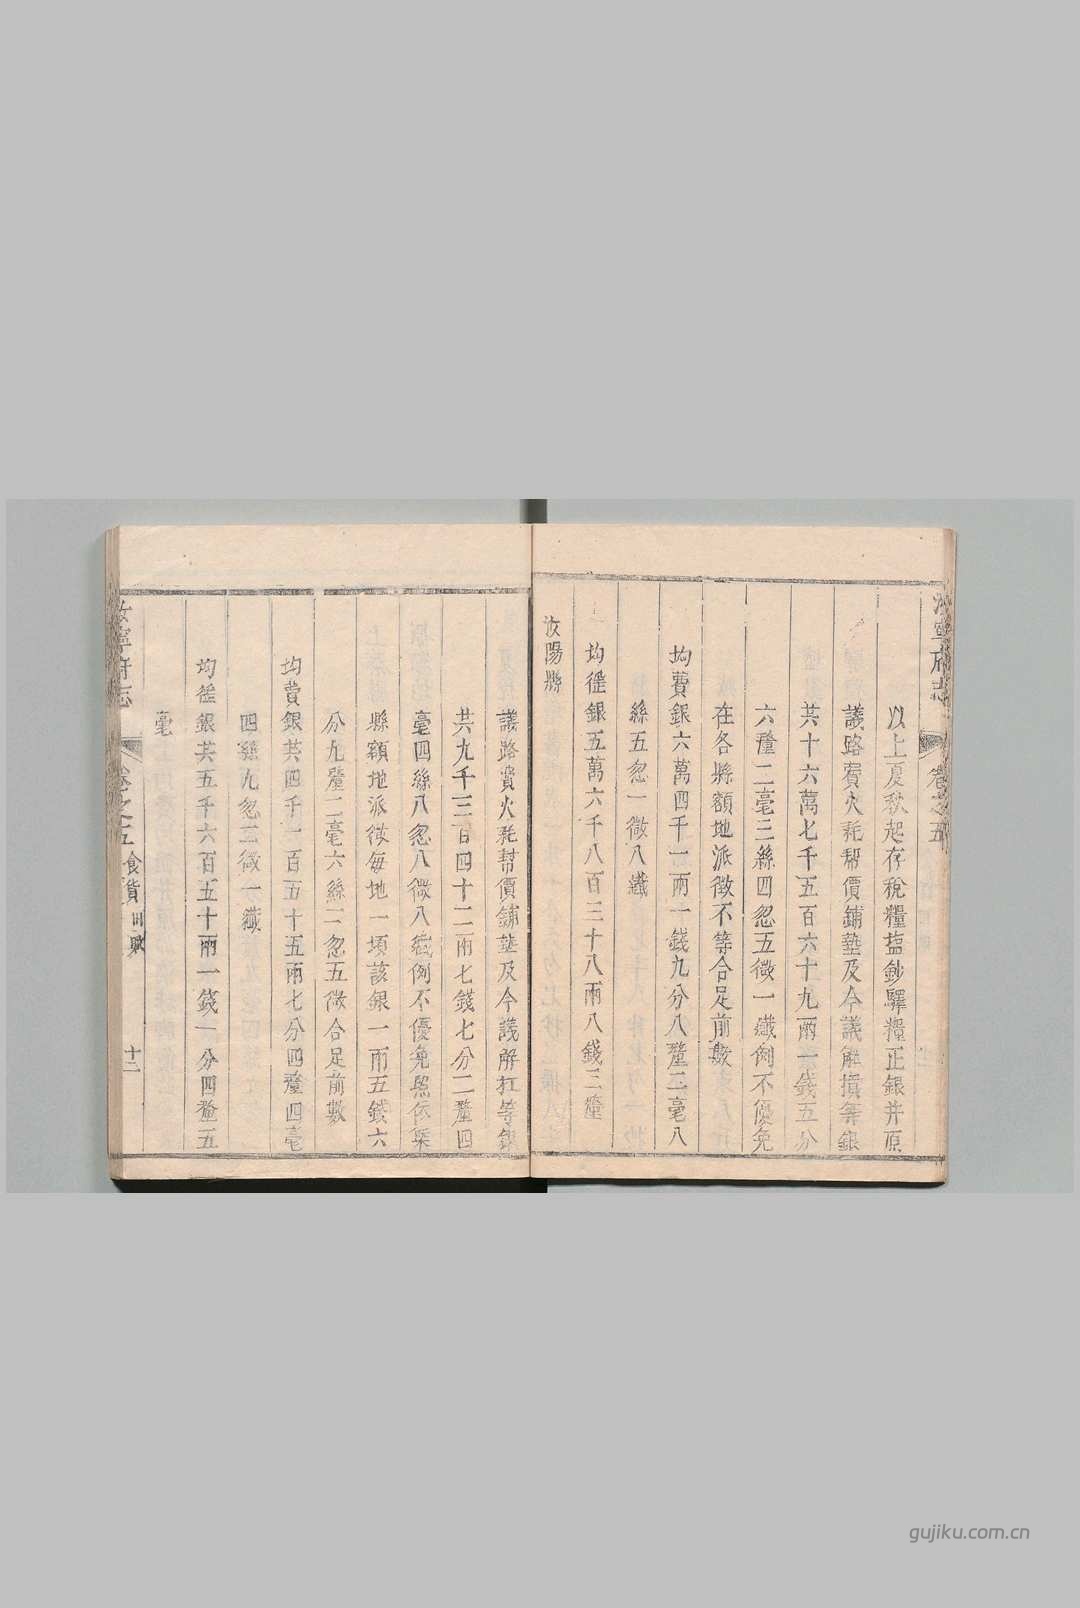 汝寧府志
卷之五
以上夏秋起存稅糧塩鈔驛糧正銀并原
議路費火耗幇價鋪墊及今議解損等銀
共十六萬七千五百六十九兩一錢五分
六釐二毫三絲四忽五微一纖例不優免
在各縣額地派徵不等合足前數
均費銀六萬四千一兩一錢九分八釐二毫八
絲五忽一微八纖
均徭銀五萬六千八百三十八兩八錢三釐
汝陽縣
議路費火耗幇價鋪墊及今議解扛等銀
共九千三百四十二兩七錢七分二釐四
毫四絲八忽八微八纖例不優免照依槩
縣額地派徵每地一頃該銀一兩五錢六
分九釐二毫六絲二忽五微合足前數
均費銀共四千一百五十五兩七分四釐四毫
四絲九忽三微一纖
均徭銀共五千六百五十兩一錢一分四釐五
毫
汝寧府志
卷之五
食貨
田賦
十二
gujiku.com.cn